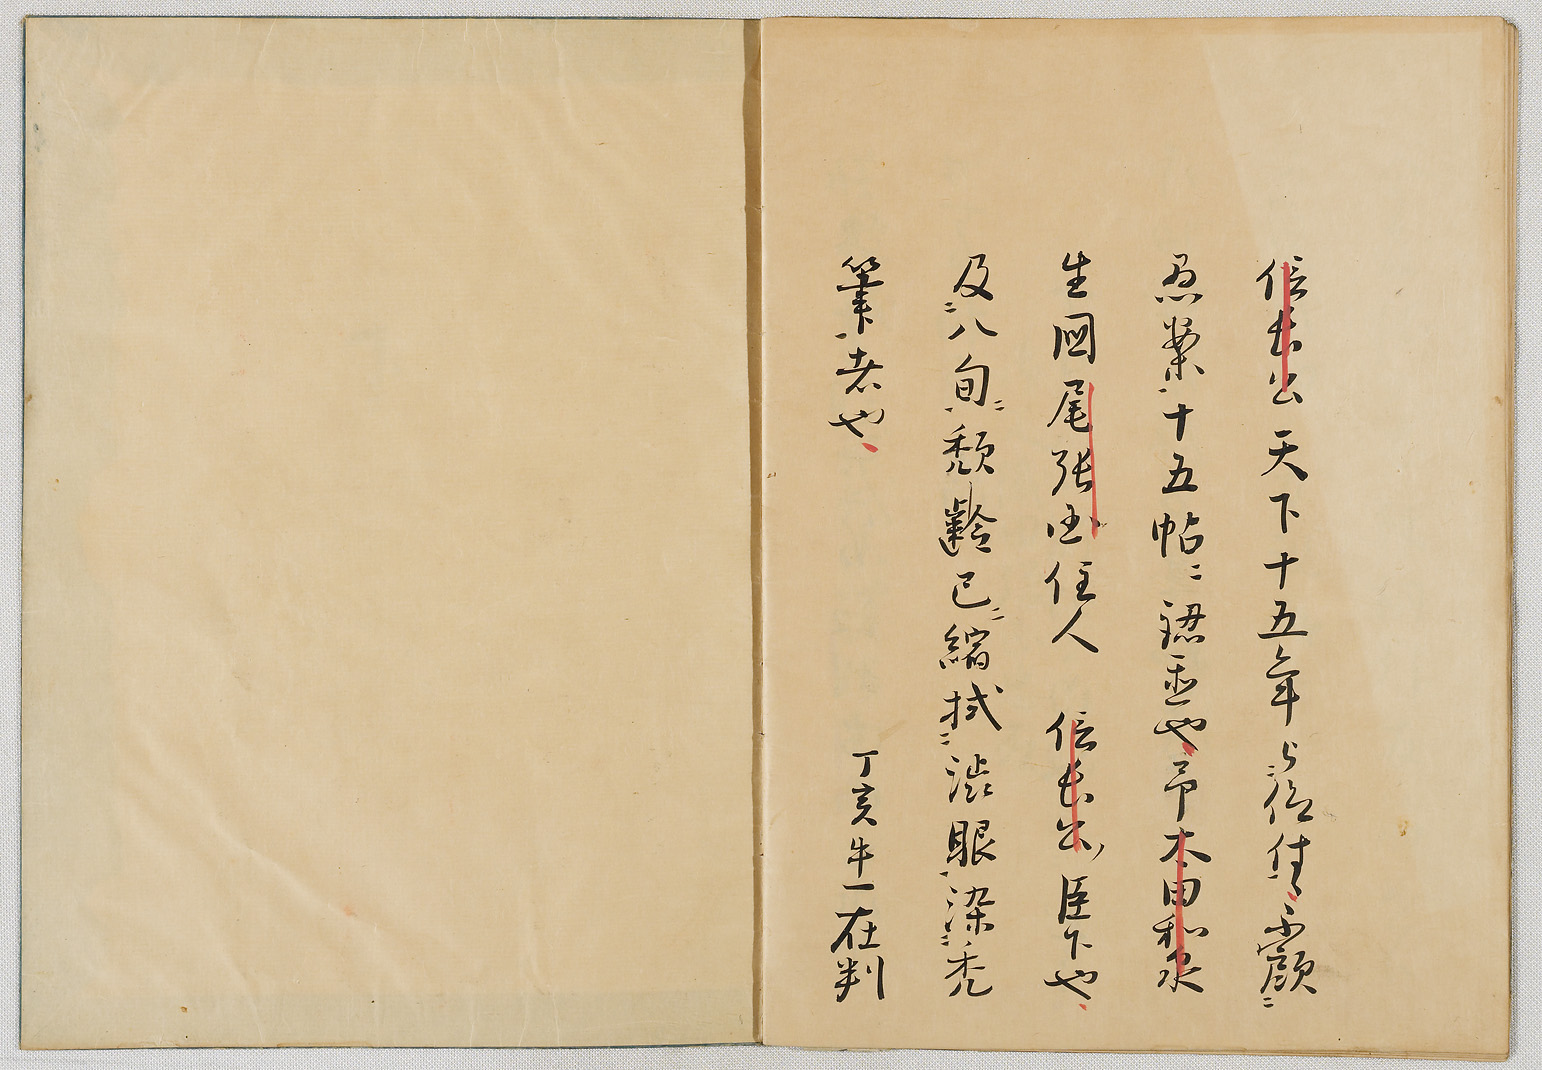 信長公天下十五年被仰付候不顧
愚案十五帖ニ認置也予太田和泉
生國尾張国住人　信長公臣下也
及八旬ニ頽齢已ニ縮拭渋眼染禿
筆者也　丁亥牛一在判